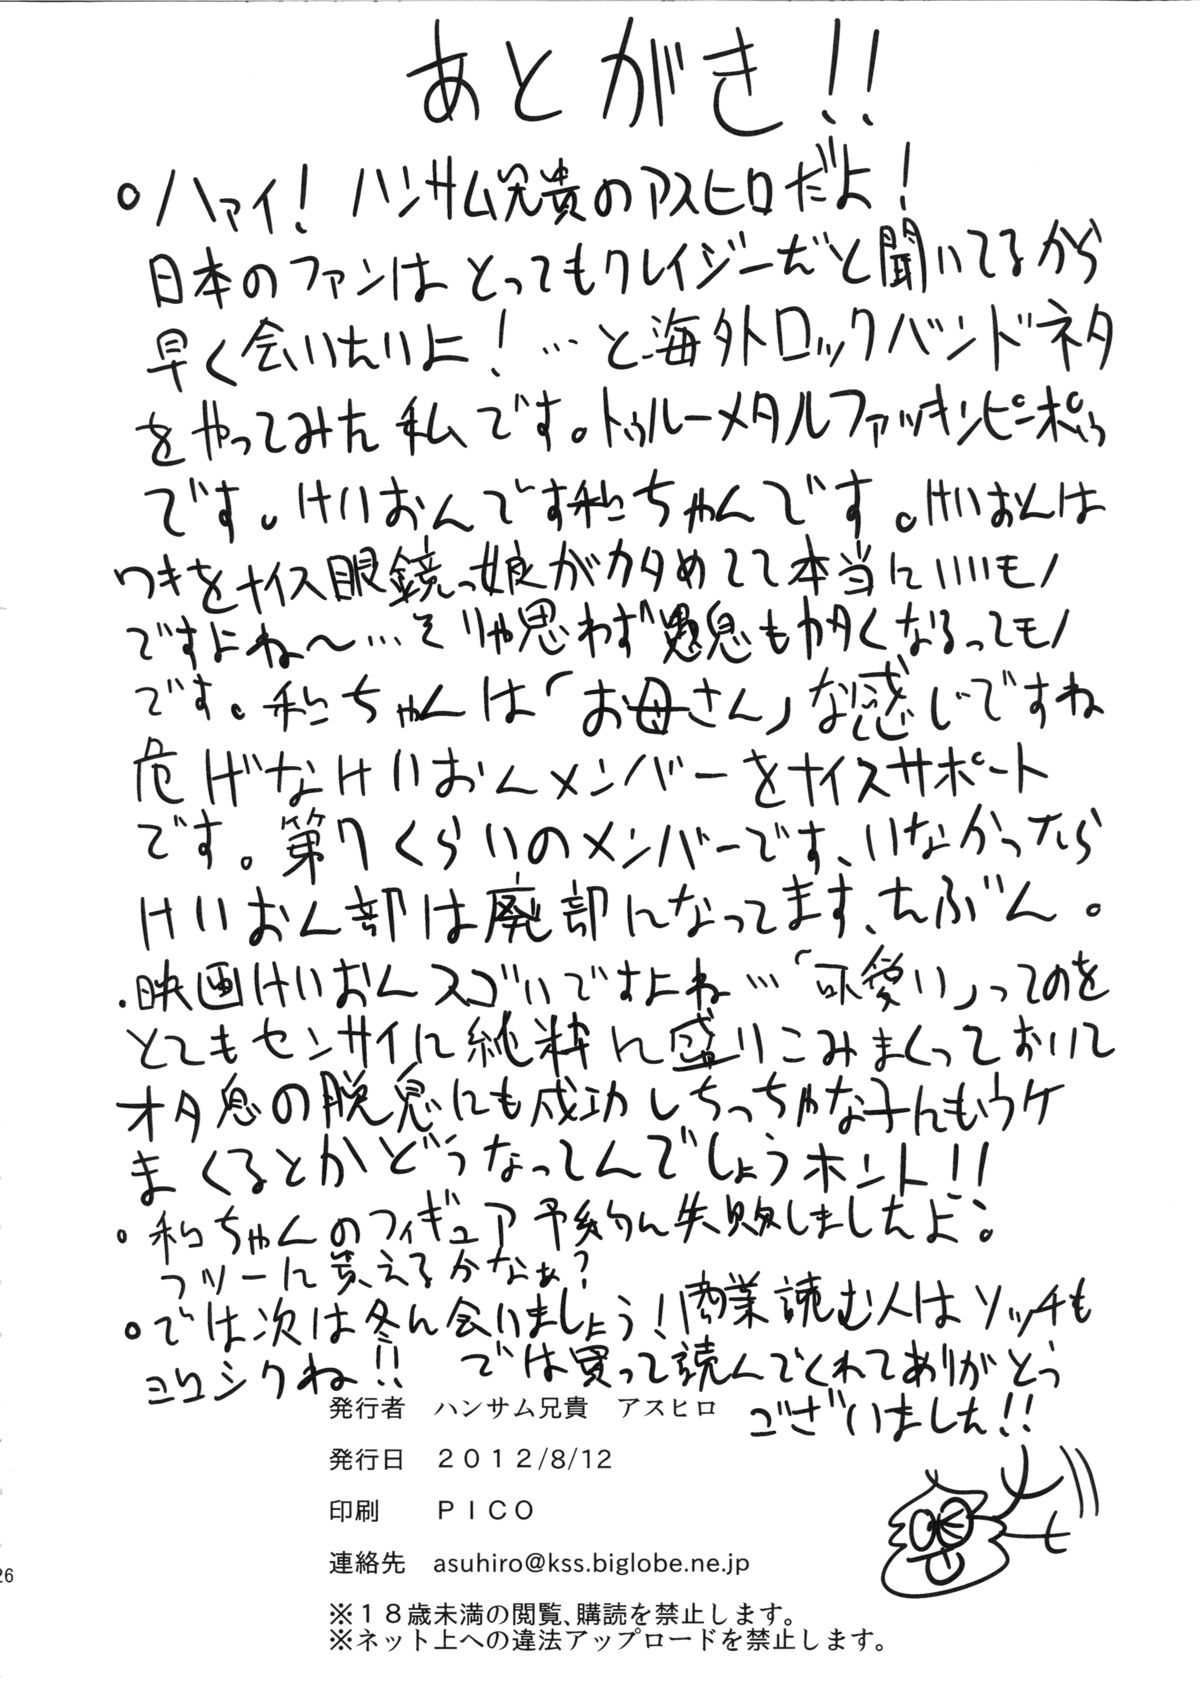 あとがき!!
・ハァイ! ハンサム兄貴のアスヒロだよ!
日本のファンはとってもクレイジーだと聞いてるから
早く会いたいよ!…と海外ロックバンドネタ
をやってみた私です。トゥルーメタルファッキンピンポゥ
です。けいおんです和ちゃんです。けいおんは
ワキをナイス眼鏡っ娘がカタめてて本当にいいモノ
ですよね〜…そりゃ思わず愚息もカタくなるってモノ
です。和ちゃんは「お母さん」な感じですね
危げなけいおんメンバーをナイスサポート
です。第7くらいのメンバーです、いなかったら
けいおん部は廃部になってます、たぶん。
・映画けいおんスゴいですよね…「可愛い」ってのを
とてもセンサイに純粋に盛りこみまくっておいて
オタ息の脱息にも成功しちっちゃな子にもウケ
まくるとかどうなってんでしょうホント!!
・和ちゃんのフィギュア予約に失敗しましたよ。
フツーに買えるかなぁ?
・では次は冬に会いましょう!商業読む人はソッチも
ヨロシクね!! では買って読んでくれてありがとう
ございました!!
発行者 ハンサム兄貴 アスヒロ
発行日 2012/8/12
印刷 PICO
連絡先 asuhiro@kss.biglobe.ne.jp
※18歳未満の閲覧、購読を禁止します。
※ネット上への違法アップロードを禁止します。
26